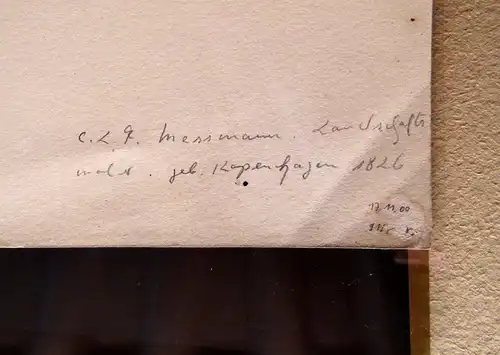 C. L. F. Messmann. Landschafts
maler. geb. Kopenhagen 1826
17.11.00